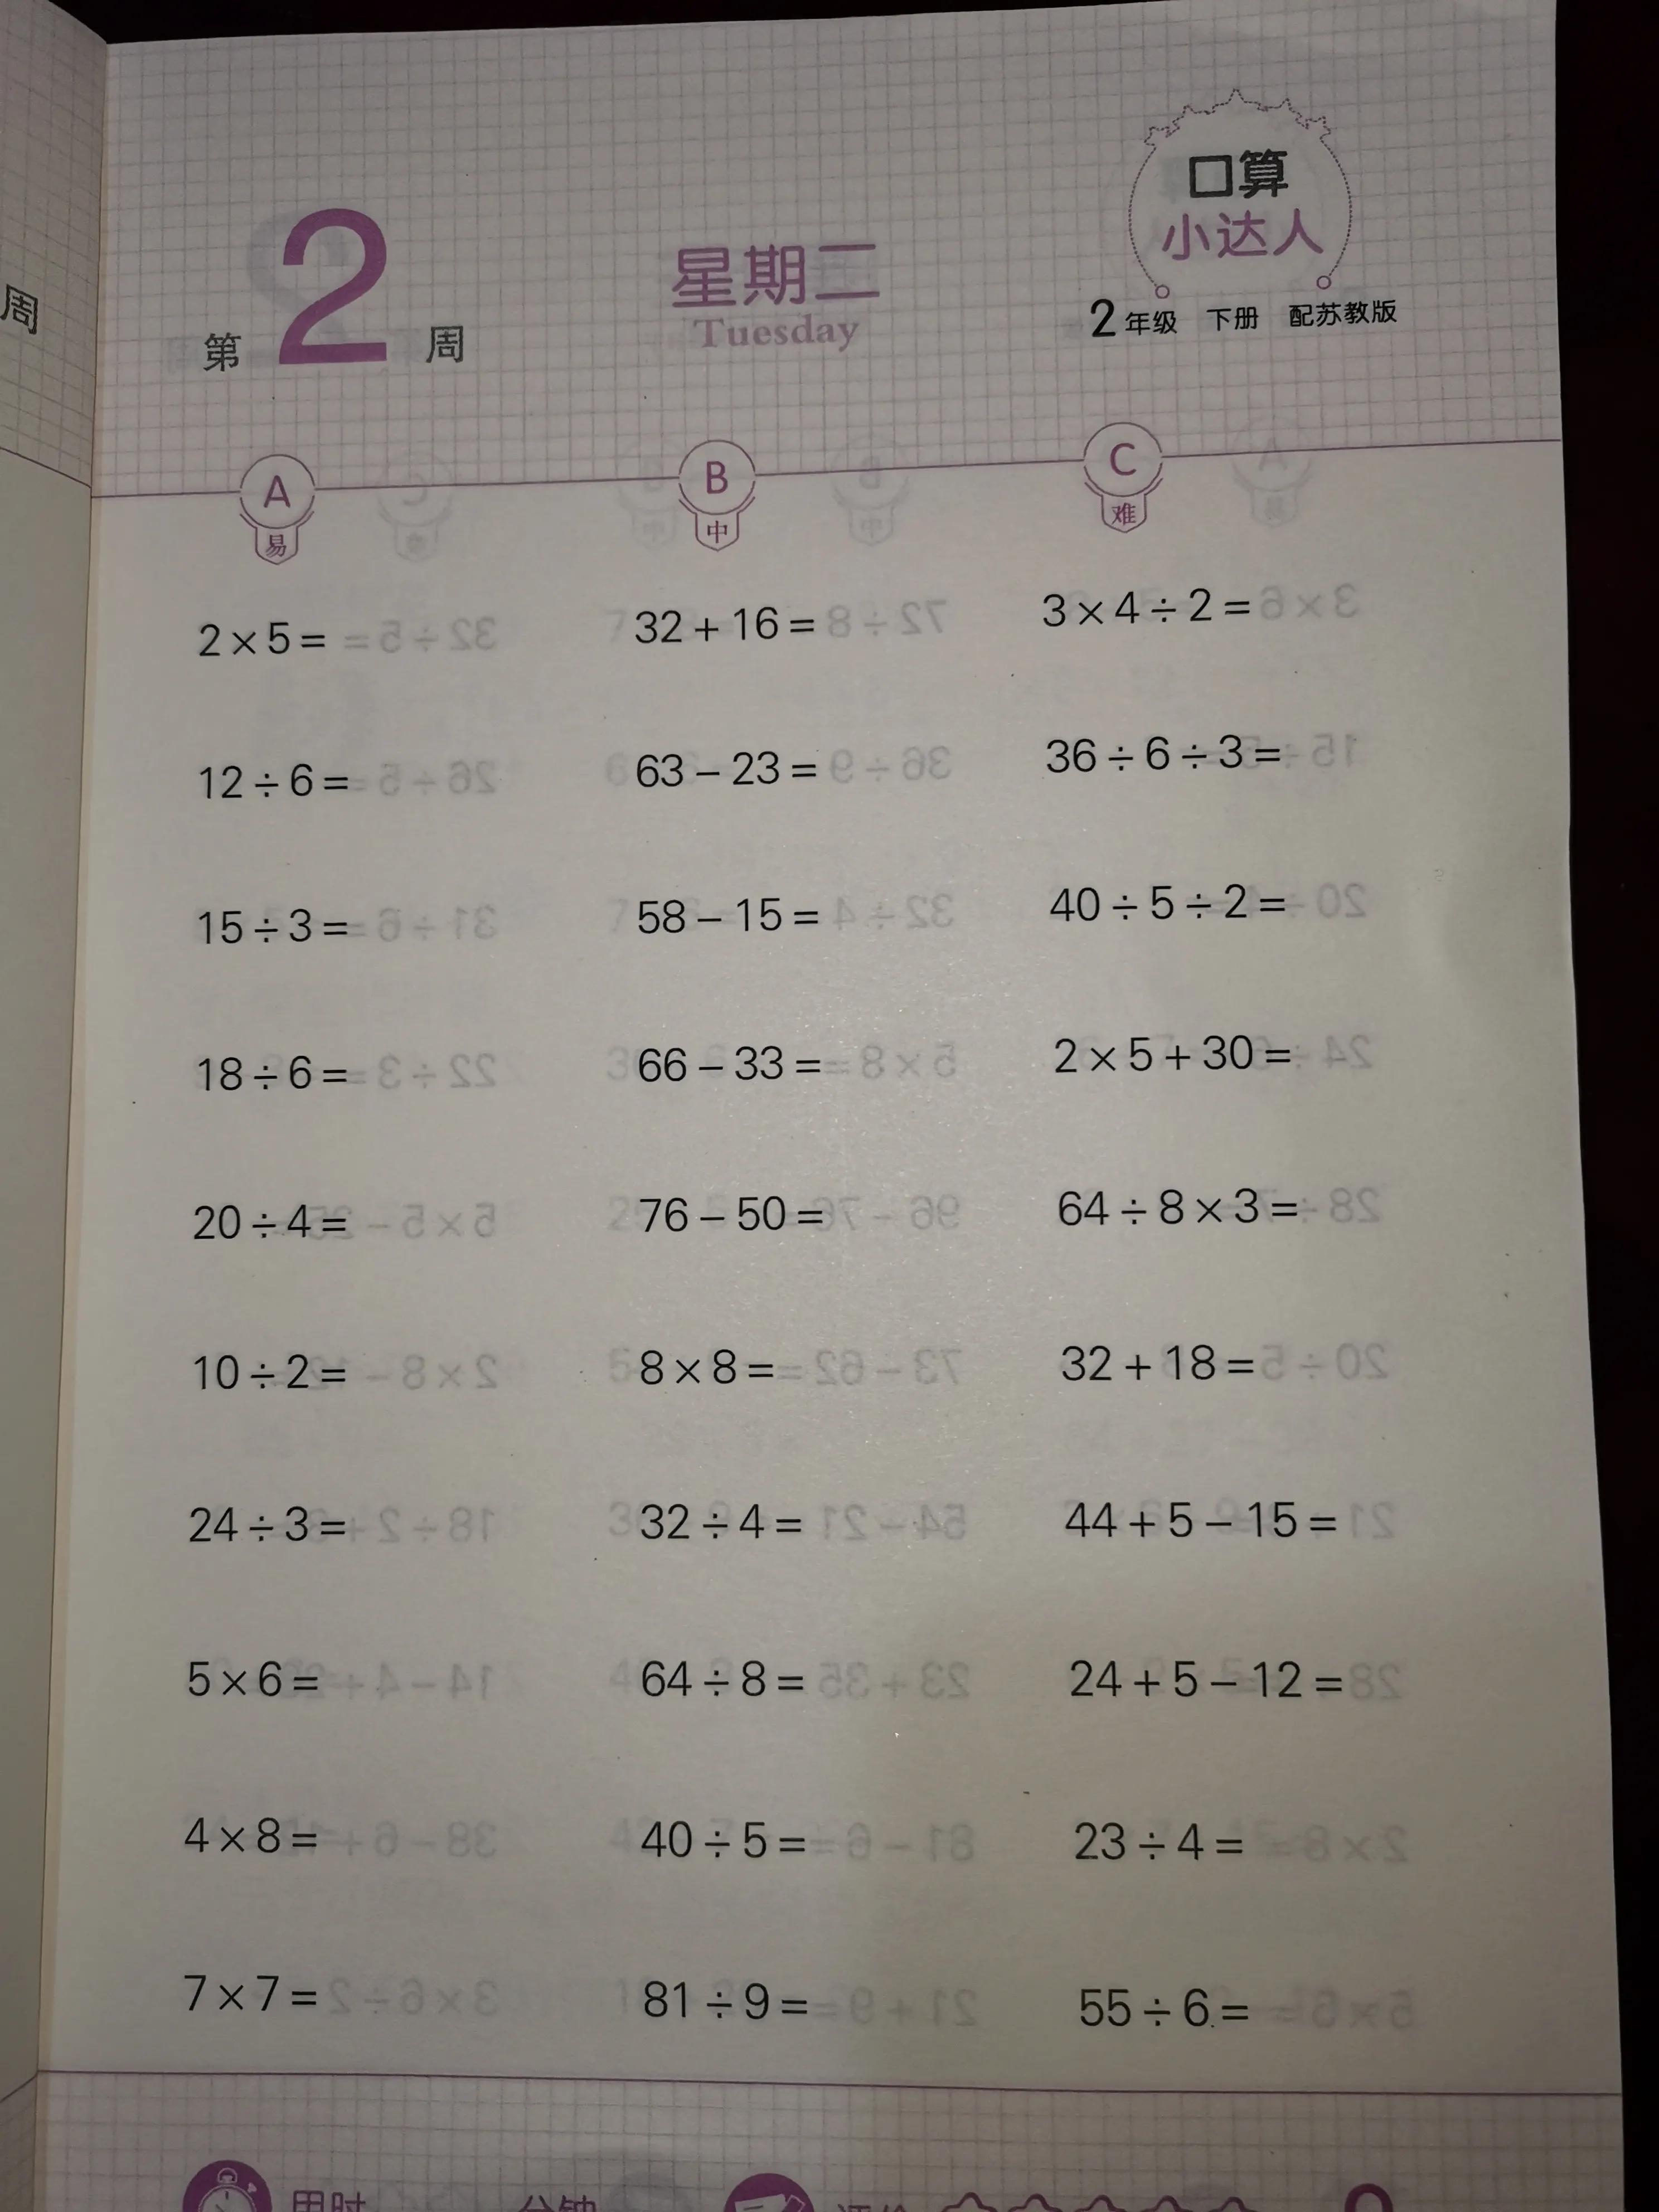 周
口算
小达人
第2周
星期二
Tuesday
2年级 下册 配苏教版
A
易
B
中
C
难
2×5= 32+16= 3×4÷2=
12÷6= 63-23= 36÷6÷3=
15÷3= 58-15= 40÷5÷2=
18÷6= 66-33= 2×5+30=
20÷4= 76-50= 64÷8×3=
10÷2= 8×8= 32+18=
24÷3= 32÷4= 44+5-15=
5×6= 64÷8= 24+5-12=
4×8= 40÷5= 23÷4=
7×7= 81÷9= 55÷6=
用时 分钟